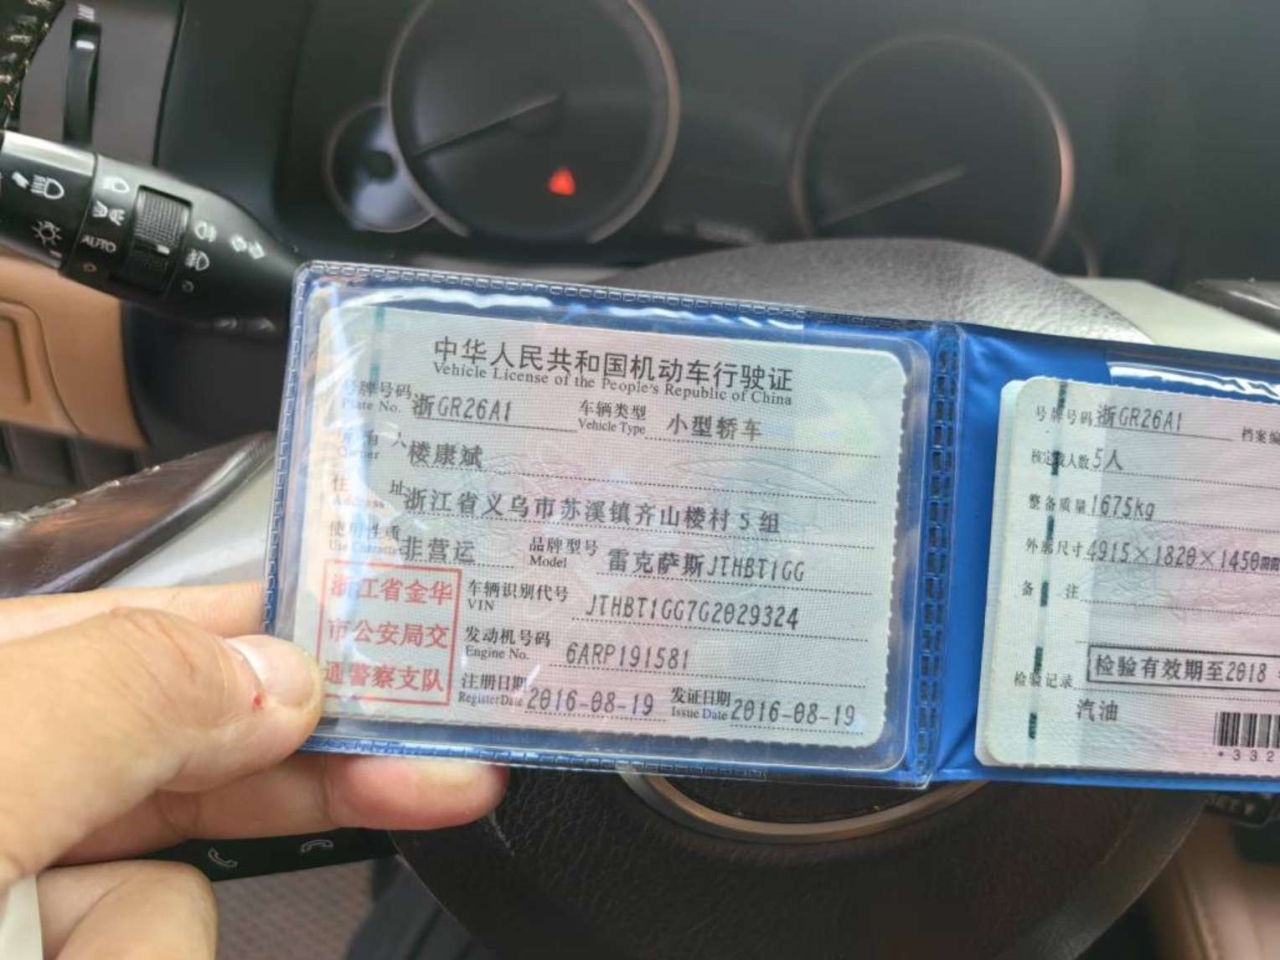 AUTO
中华人民共和国机动车行驶证
Vehicle License of the People's Republic of China
号牌号码 浙GR26A1 车辆类型 小型轿车
Plate No. Vehicle Type
所有人 楼康斌
Owner
住址 浙江省义乌市苏溪镇齐山楼村5组
Address
使用性质 非营运 品牌型号 雷克萨斯JTHBT1GG
Use Character Model
浙江省金华
市公安局交
通警察支队
车辆识别代号 JTHBT1GG7G2029324
VIN
发动机号码 6ARP191581
Engine No.
注册日期 2016-08-19 发证日期 2016-08-19
Register Date Issue Date
号牌号码 浙GR26A1 档案编
核定载人数 5人
整备质量 1675kg
外廓尺寸 4915×1820×1450mm
备注
检验有效期至2018
检验记录
汽油
*332